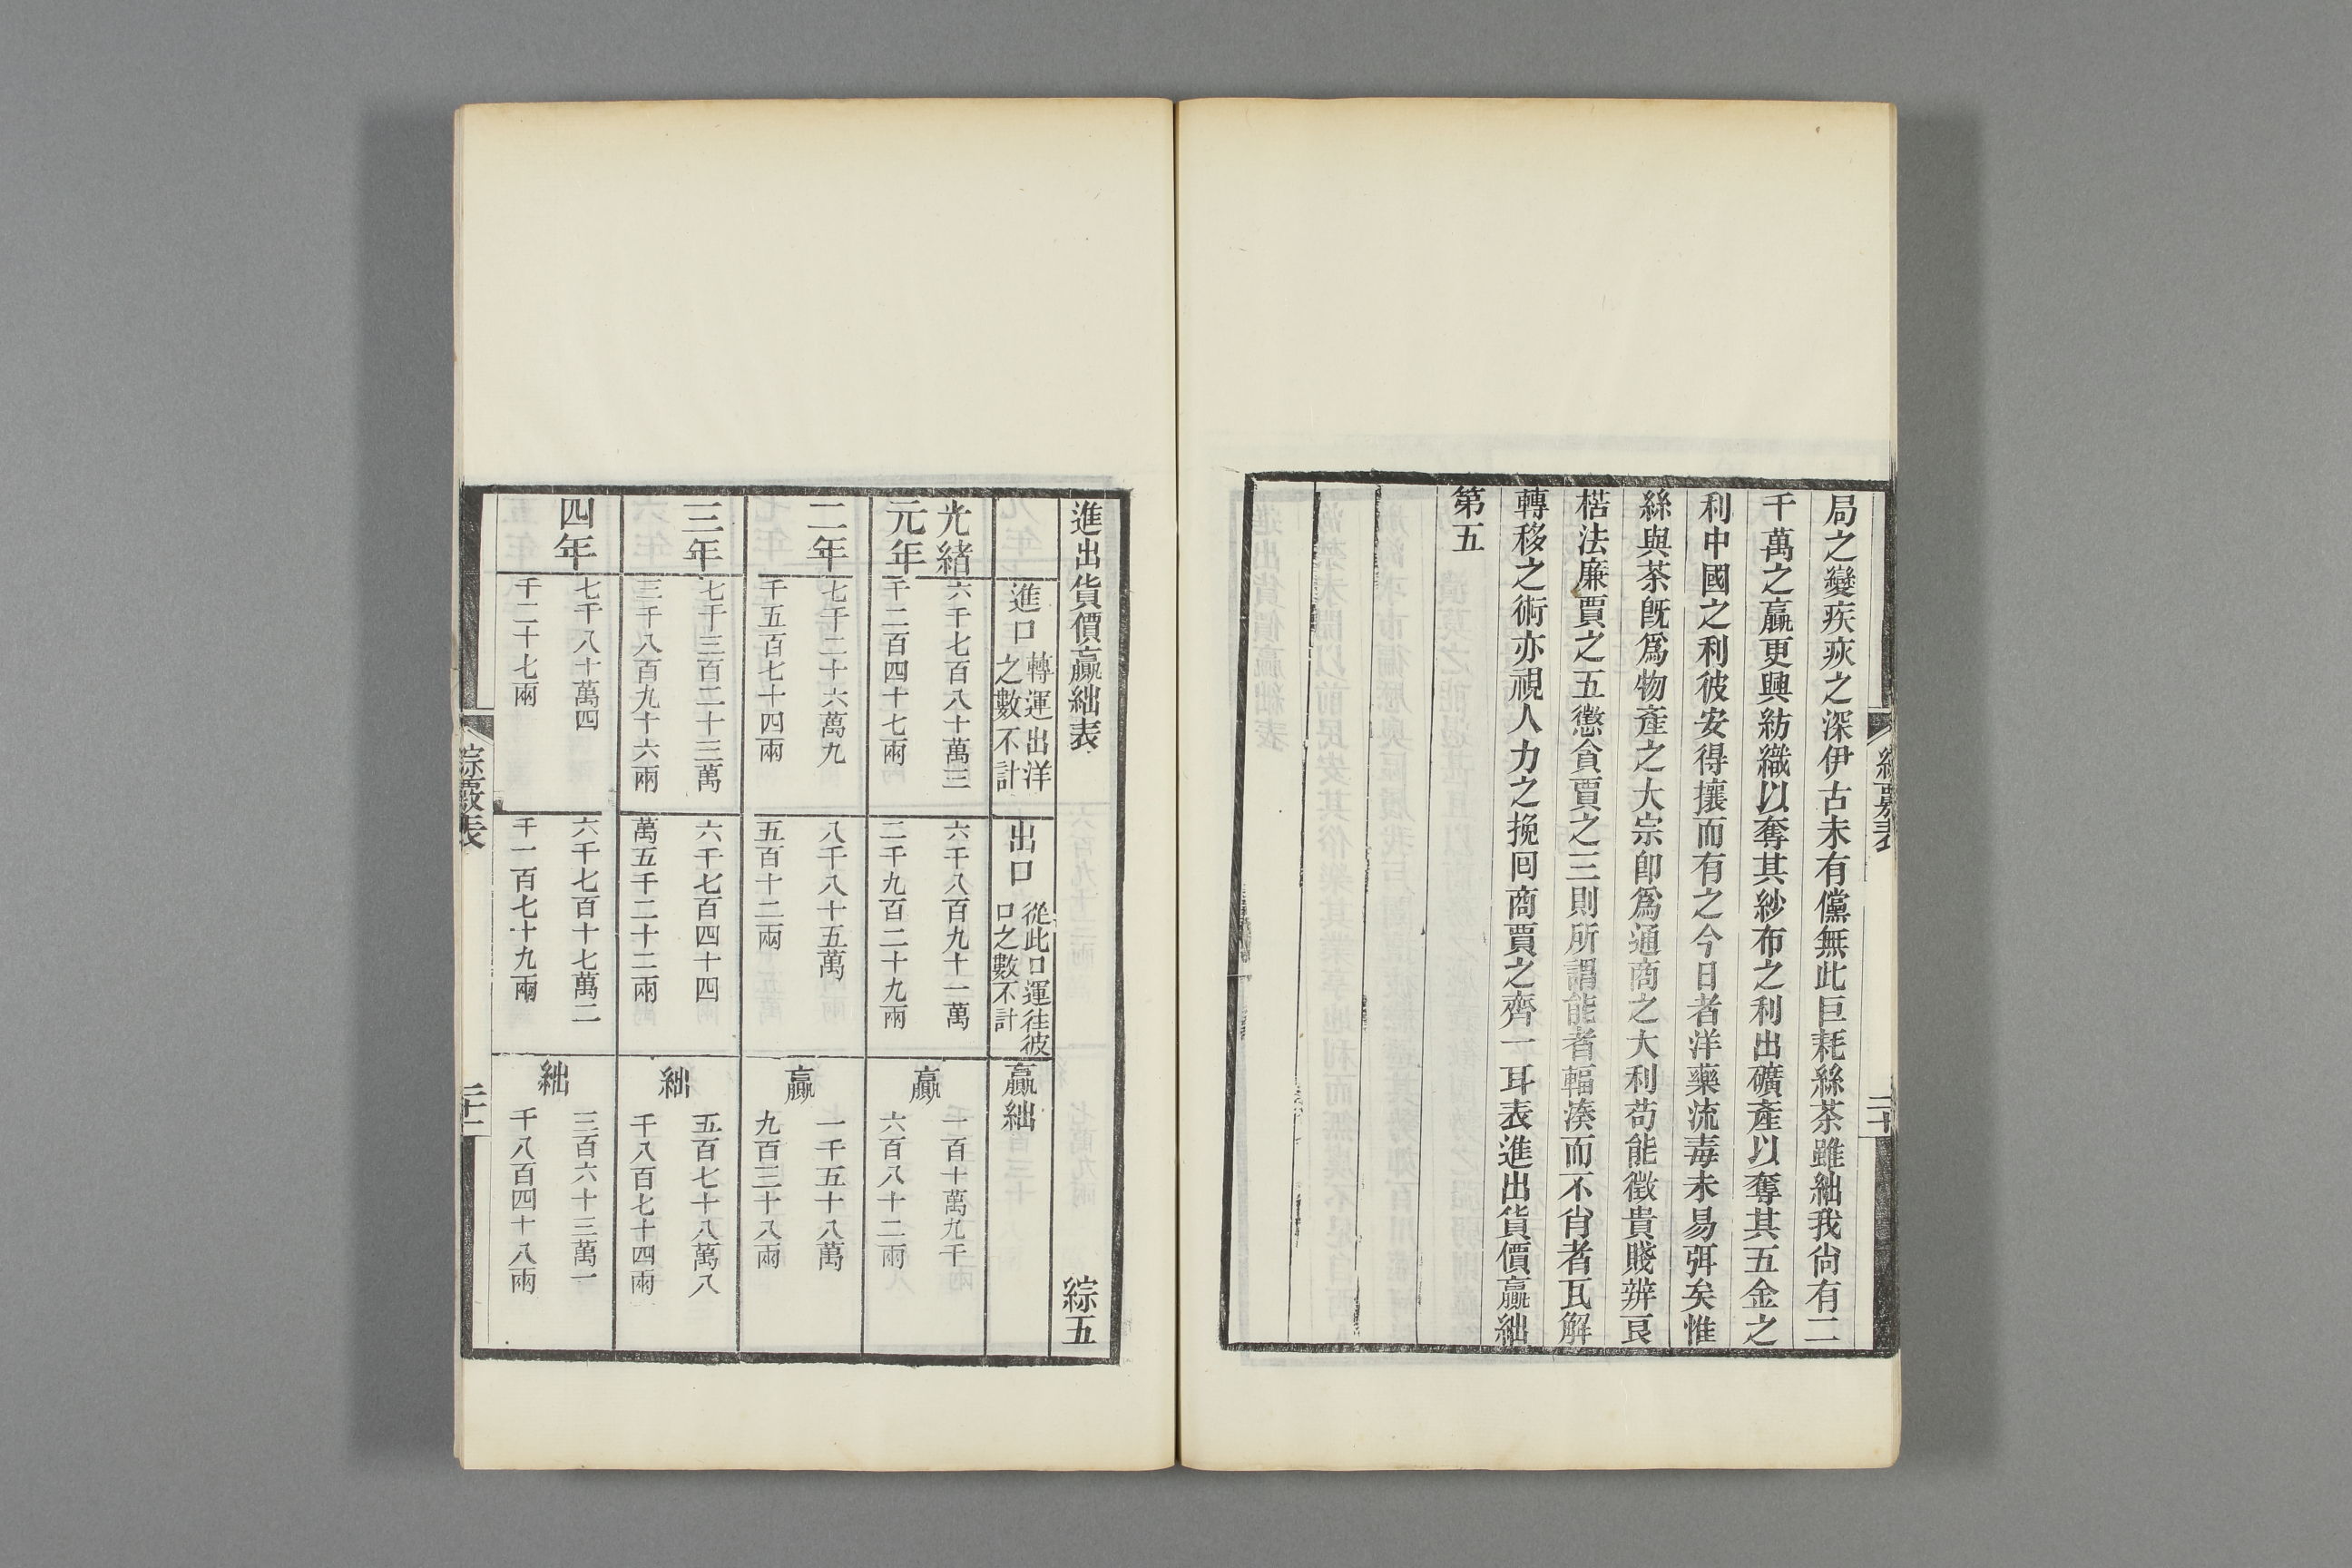 局之變疾疢之深伊古未有儻無此巨耗絲茶雖絀我尙有二
千萬之贏更興紡織以奪其紗布之利出礦產以奪其五金之
利中國之利彼安得攘而有之今日者洋藥流毒未易弭矣惟
絲與茶旣爲物產之大宗卽爲通商之大利苟能徵貴賤辨良
楛法廉賈之五懲貪賈之三則所謂能者輻湊而不肖者瓦解
轉移之術亦視人力之挽回商賈之齊一耳表進出貨價贏絀
第五
二十
進出貨價贏絀表
綜五
進口
轉運出洋
之數不計
出口
從此口運往彼
口之數不計
贏絀
光緒
元年
六千七百八十萬三
千二百四十七兩
六千八百九十一萬
二千九百二十九兩
贏
一百十萬九千
六百八十二兩
二年
七千二十六萬九
千五百七十四兩
八千八十五萬
五百十二兩
贏
一千五十八萬
九百三十八兩
三年
七千三百二十三萬
三千八百九十六兩
六千七百四十四
萬五千二十二兩
絀
五百七十八萬八
千八百七十四兩
四年
七千八十萬四
千二十七兩
六千七百十七萬二
千一百七十九兩
絀
三百六十三萬一
千八百四十八兩
綜覈表
二十一